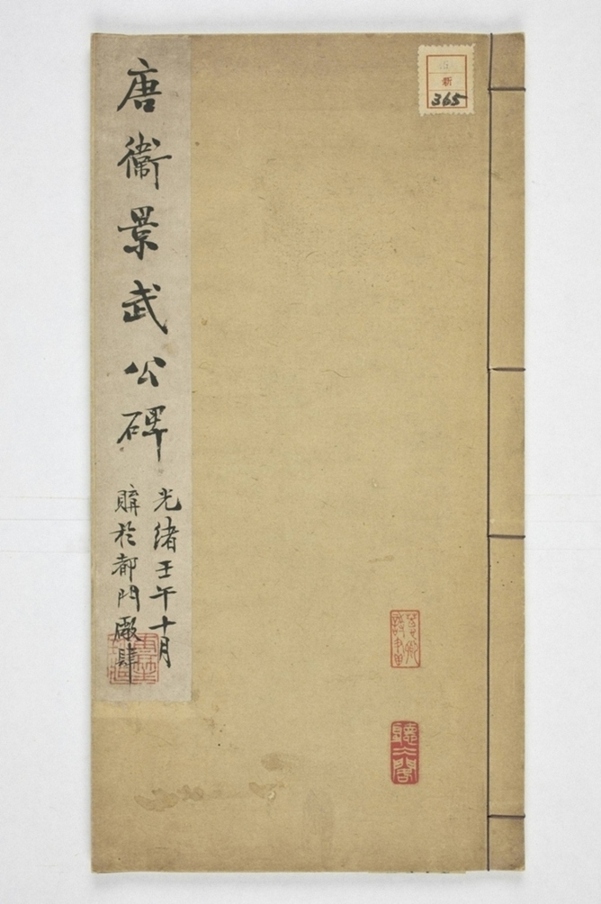 唐衛景武公碑
光緒壬午十月
購於都門廠肆
新
365
聽冰閣